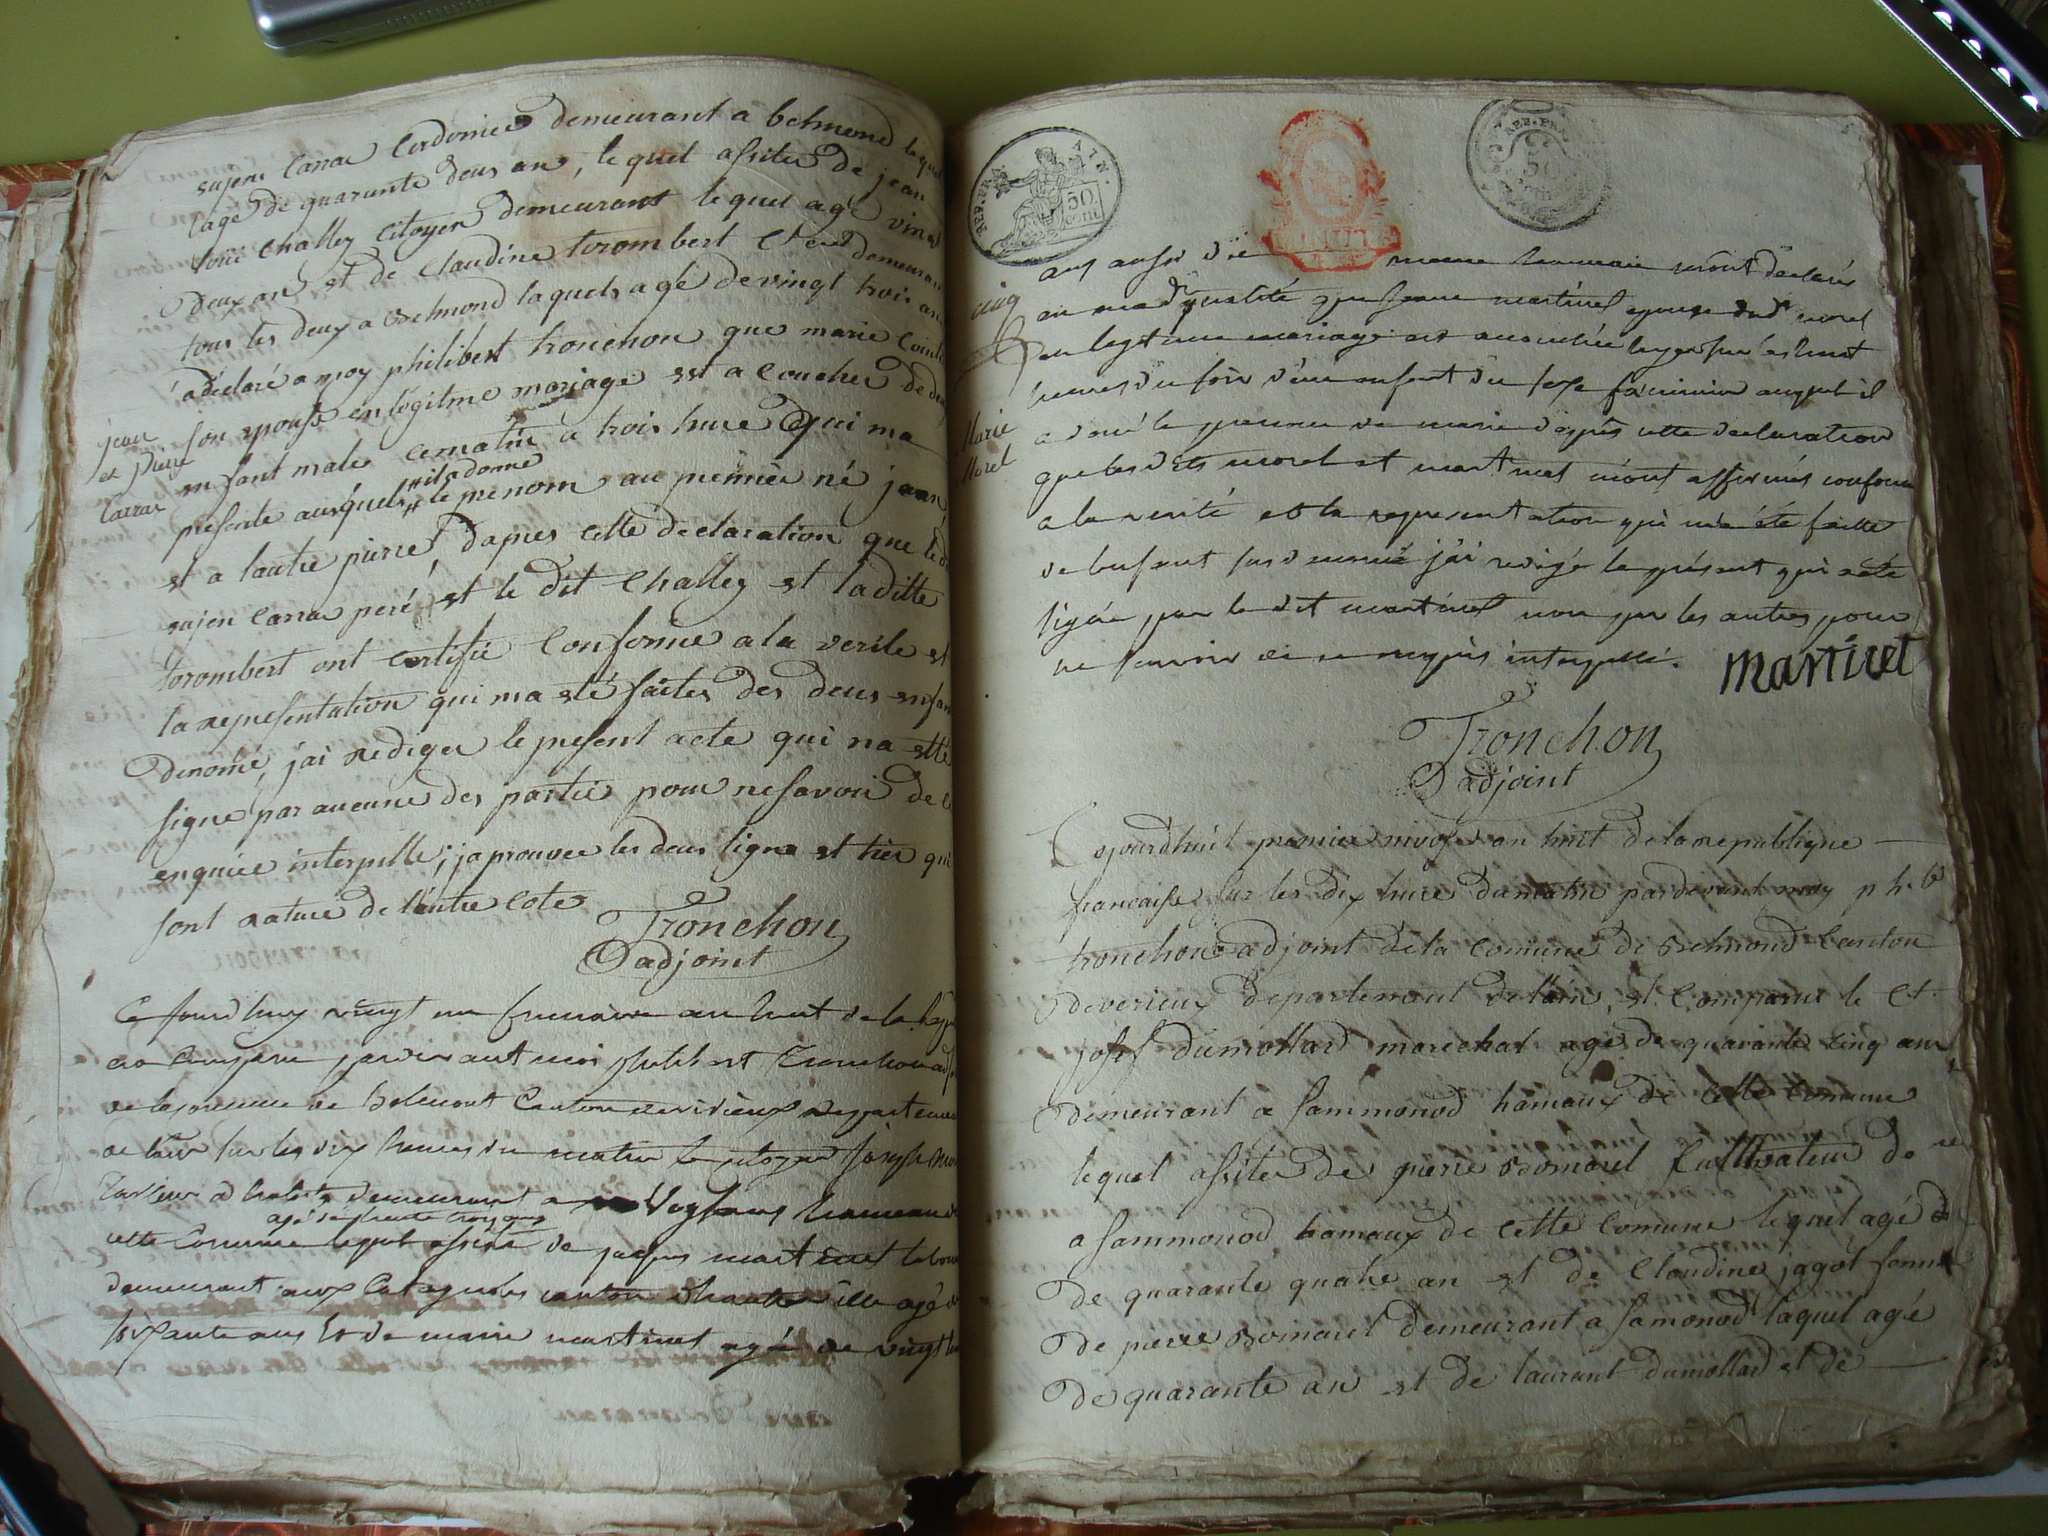 sujene Carra Cordonier demeurant a belmond lequel
lagé de quarante deus an, le quel assiter de jean
loui Challey Citoyen demeurant lequel agé vingt
deux an et de Claudine torombert demeurant
tous les deux a Belmond laquels agé de vingt trois an
a déclaré a moy philibert tronchon que marie
son epouse en légitime mariage est a Coucher de deux
jean
et pierre
Carrar
enfant male cematin a trois hure qui ma
presente auxquels il a donné le prenom au premier né jean
et a lautre pierre, dapres cette declaration que le dit
sujen Carra peré et le dit Challey et laditte
torombert ont certifié Conforme a la verité et
la representation qui ma eté faites des deus enfan
denomé, j'ai rediger le present acte qui na etté
signe par aucune des partie pour ne savoir de ce
enquire interpellé; japrouvee les deus ligne et tier qui
sont rature de l'autre Cotes
Tronchon
adjoint
Ce jourdhuy vingt un frimaire an huit de la Rep
a Comparu pardevant moi philibert Tronchon adj
de la commune de Belmont Canton de virieux departemen
de lain sur les dix heures du matin le citoyen Joseph Mor
Tailleur d'habits demeurant a Voysens hameau de
agé de trente trois ans
cette Commune lequel assisté de jacques martinet labour
demeurant aux Catagnols canton d'hauteville agé de
soixante ans et de marie martinet agée de vingt
REP. FRA. AIN.
50 cent
REP. FRA
50
cinq
Marie
Morel
ans aussi m'ont déclaré
en ma dte qualité que jeane martinet epouse du dt morel
en legitime mariage est accouchée hyer sur les huit
heures du soir d'un enfant du sexe féminin auquel il
a doné le prenom de marie d'après cette declaration
que les dits morel et martinet m'ont affirmés conforme
a la verité et la representation qui m'a été faitte
de l'enfant susdenomé j'ai redigé le présent qui a été
signé par le dit martinet non par les autres pour
ne savoir de ce requis interpellé.
martinet
Tronchon
adjoint
Cejourdhuil premier nivose an huit de la republique
francaise sur les dix hure du matin pardevant moy ph. b
tronchon adjoint de la Comune de Belmond Canton
de verieux departement de lain, et Comparue le Ct.
josef dumollard marechal agé de quarante cinq an
demeurant a Sammonod hamaux de cette Comune
lequel assiter de pierre Bomarel Cultivateur de
a Sammonod hamaux de cette Comune lequel agé de
de quarante quatre an et de Claudine jagot fenme
de pierre Bomarel demeurant a Samonod laquel agé
de quarante an et de laurant dumollard et de